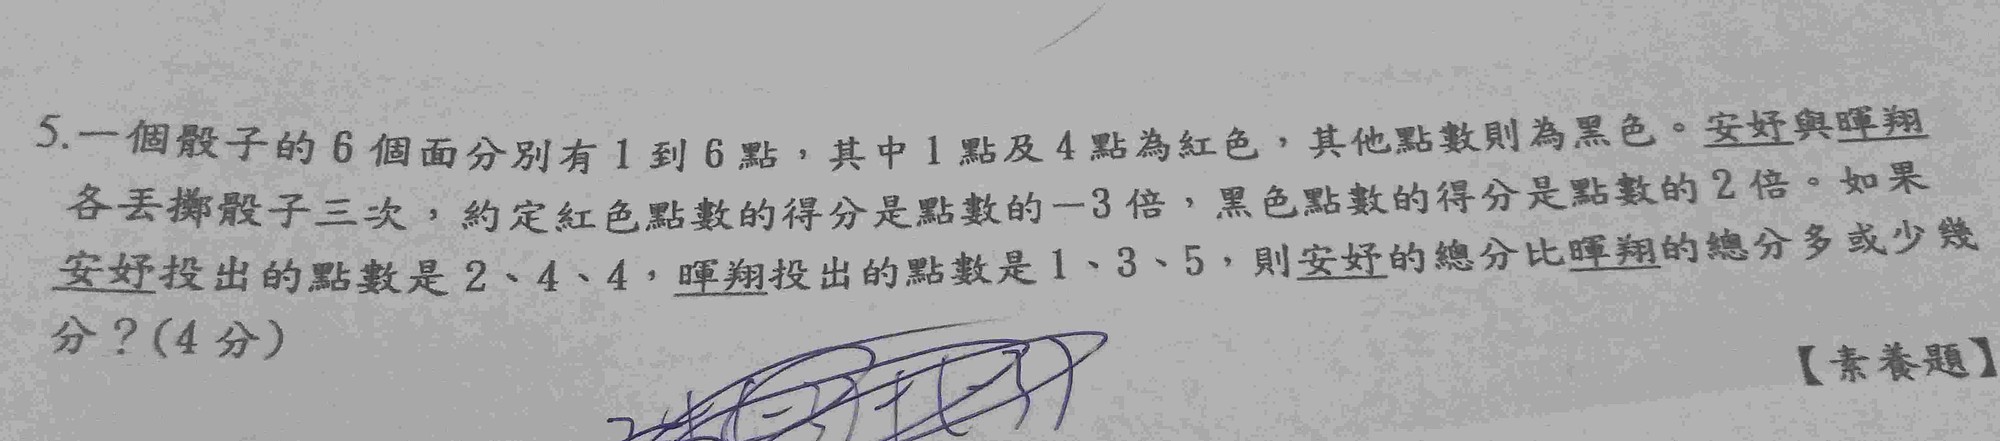 5.一個骰子的6個面分別有1到6點，其中1點及4點為紅色，其他點數則為黑色。安妤與暉翔
各丟擲骰子三次，約定紅色點數的得分是點數的－3倍，黑色點數的得分是點數的2倍。如果
安妤投出的點數是2、4、4，暉翔投出的點數是1、3、5，則安妤的總分比暉翔的總分多或少幾
分？(4分)
【素養題】